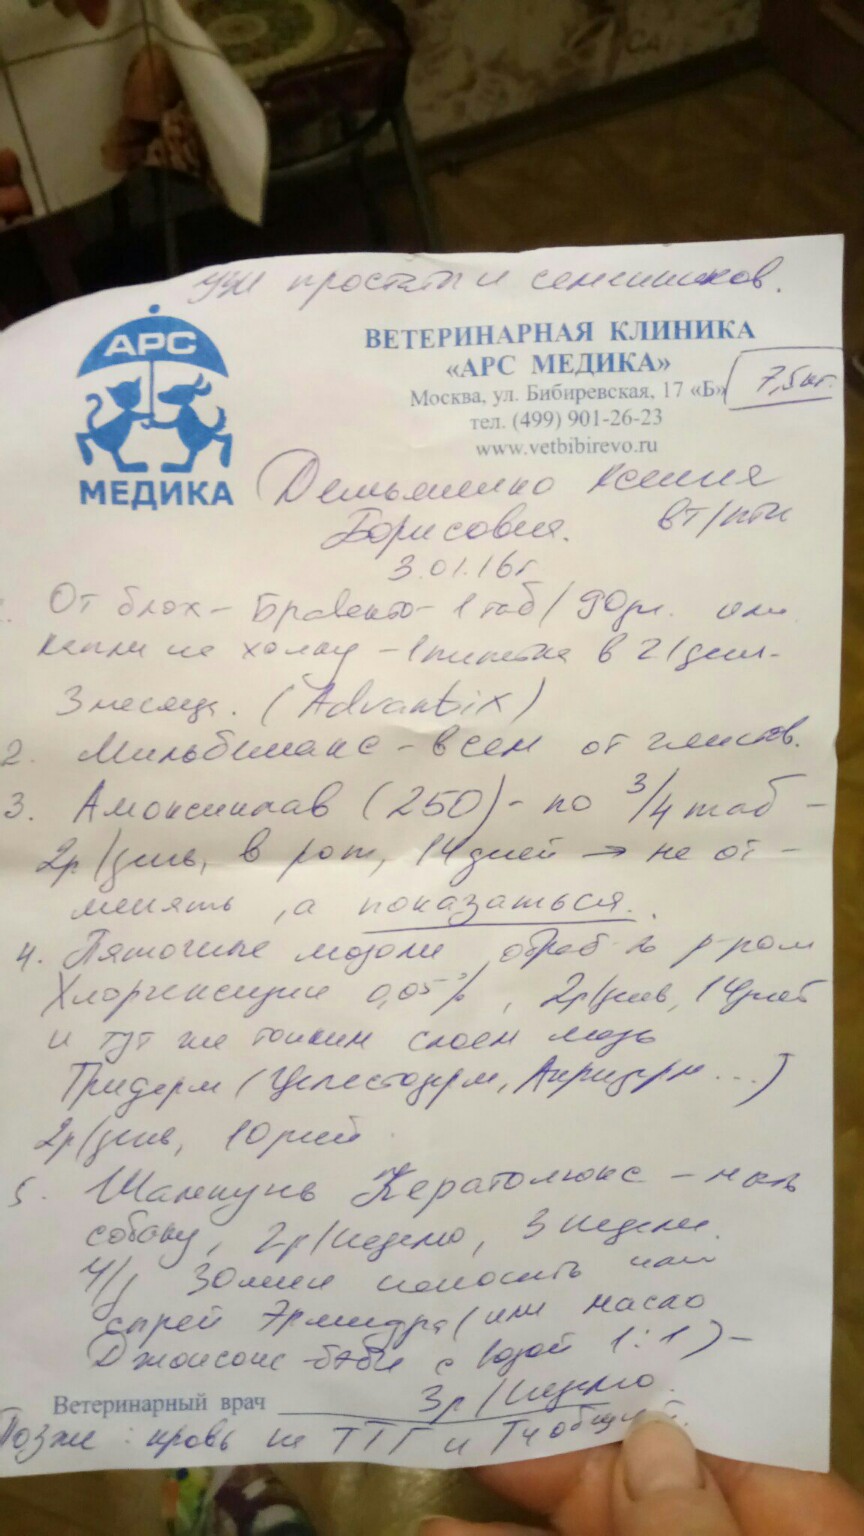 УЗИ простаты и семенников.
АРС
МЕДИКА
ВЕТЕРИНАРНАЯ КЛИНИКА
«АРС МЕДИКА»
Москва, ул. Бибиревская, 17 «Б»
7,5 кг.
тел. (499) 901-26-23
www.vetbibirevo.ru
Демьяненко Ксения
Борисовна. вт/птн
3.01.16г
От блох - Бравекто - 1 таб/90дн. или
капли на холку - 1 пипетка в 21день -
3 месяца. (Advantix)
2. Мильбемакс - всем от глистов.
3. Амоксиклав (250) - по 3/4 таб -
2р/день, в рот, 14 дней → не от-
менять, а показаться.
4. Пяточные мозоли обраб-ть р-ром
Хлоргексидин 0,05%, 2р/день, 14дней
и тут же тонким слоем мазь
Тридерм (Целестодерм, Акридерм ...)
2р/день, 10 дней
5. Шампунь Кератолюкс - мыть
собаку, 2р/неделю, 3 недели.
Ч/з 30мин наносить
спрей Эрмидра (или масло
Джонсонс-бэби с водой 1:1) -
Ветеринарный врач 3р/неделю.
Позже: кровь на ТТГ и Т4 общий.